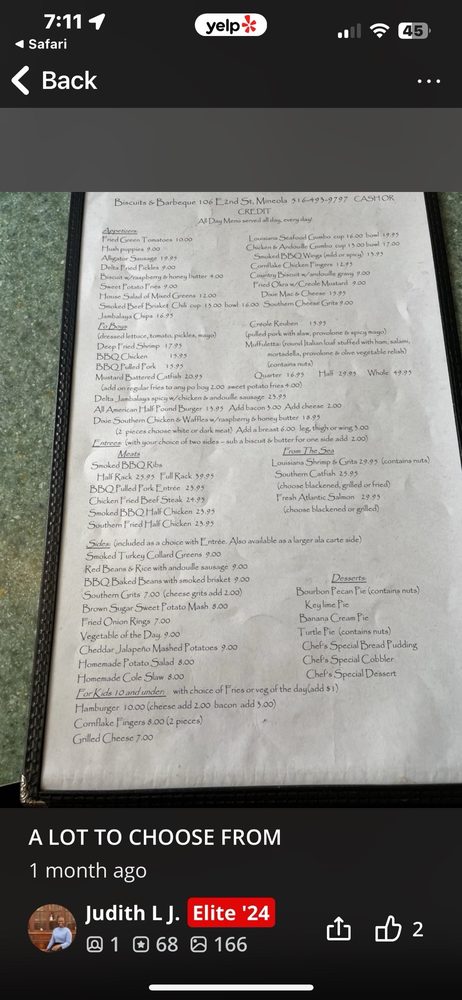 7:11
yelp
45
Safari
Back
Biscuits & Barbeque 106 E2nd St, Mineola 516-493-9797 CASH OR
CREDIT
All Day Menu served all day, every day!
Appetizers:
Fried Green Tomatoes 10.00
Hush puppies 9.00
Alligator Sausage 19.95
Delta Fried Pickles 9.00
Biscuit w/raspberry & honey butter 4.00
Sweet Potato Fries 9.00
House Salad of Mixed Greens 12.00
Smoked Beef Brisket Chili cup 13.00 bowl 16.00
Jambalaya Chips 16.95
Louisiana Seafood Gumbo cup 16.00 bowl 19.95
Chicken & Andouille Gumbo cup 13.00 bowl 17.00
Smoked BBQ Wings (mild or spicy) 15.95
Cornflake Chicken Fingers 12.95
Country Biscuit w/andouille gravy 9.00
Fried Okra w/Creole Mustard 9.00
Dixie Mac & Cheese 13.95
Southern Cheese Grits 9.00
Po Boys
(dressed lettuce, tomato, pickles, mayo)
Deep Fried Shrimp 17.95
BBQ Chicken 15.95
BBQ Pulled Pork 15.95
Mustard Battered Catfish 20.95
Creole Reuben 15.95
(pulled pork with slaw, provolone & spicy mayo)
Muffuletta: (round Italian loaf stuffed with ham, salami,
mortadella, provolone & olive vegetable relish)
(contains nuts)
Quarter 16.95 Half 29.95 Whole 49.95
(add on regular fries to any po boy 2.00 sweet potato fries 4.00)
Delta Jambalaya spicy w/chicken & andouille sausage 23.95
All American Half Pound Burger 15.95 Add bacon 3.00 Add cheese 2.00
Dixie Southern Chicken & Waffles w/raspberry & honey butter 18.95
(2 pieces choose white or dark meat) Add a breast 6.00 leg, thigh or wing 3.00
Entrees: (with your choice of two sides – sub a biscuit & butter for one side add 2.00)
Meats
Smoked BBQ Ribs
Half Rack 25.95 Full Rack 39.95
BBQ Pulled Pork Entrée 23.95
Chicken Fried Beef Steak 24.95
Smoked BBQ Half Chicken 23.95
Southern Fried Half Chicken 23.95
From The Sea
Louisiana Shrimp & Grits 29.95 (contains nuts)
Southern Catfish 25.95
(choose blackened, grilled or fried)
Fresh Atlantic Salmon 29.95
(choose blackened or grilled)
Sides: (included as a choice with Entrée. Also available as a larger ala carte side)
Smoked Turkey Collard Greens 9.00
Red Beans & Rice with andouille sausage 9.00
BBQ Baked Beans with smoked brisket 9.00
Southern Grits 7.00 (cheese grits add 2.00)
Brown Sugar Sweet Potato Mash 8.00
Fried Onion Rings 7.00
Vegetable of the Day 9.00
Cheddar Jalapeño Mashed Potatoes 9.00
Homemade Potato Salad 8.00
Homemade Cole Slaw 8.00
Desserts:
Bourbon Pecan Pie (contains nuts)
Key lime Pie
Banana Cream Pie
Turtle Pie (contains nuts)
Chef's Special Bread Pudding
Chef's Special Cobbler
Chef's Special Dessert
For Kids 10 and under: with choice of Fries or veg of the day(add $1)
Hamburger 10.00 (cheese add 2.00 bacon add 3.00)
Cornflake Fingers 8.00 (2 pieces)
Grilled Cheese 7.00
A LOT TO CHOOSE FROM
1 month ago
Judith L J. Elite '24
1 68 166
2